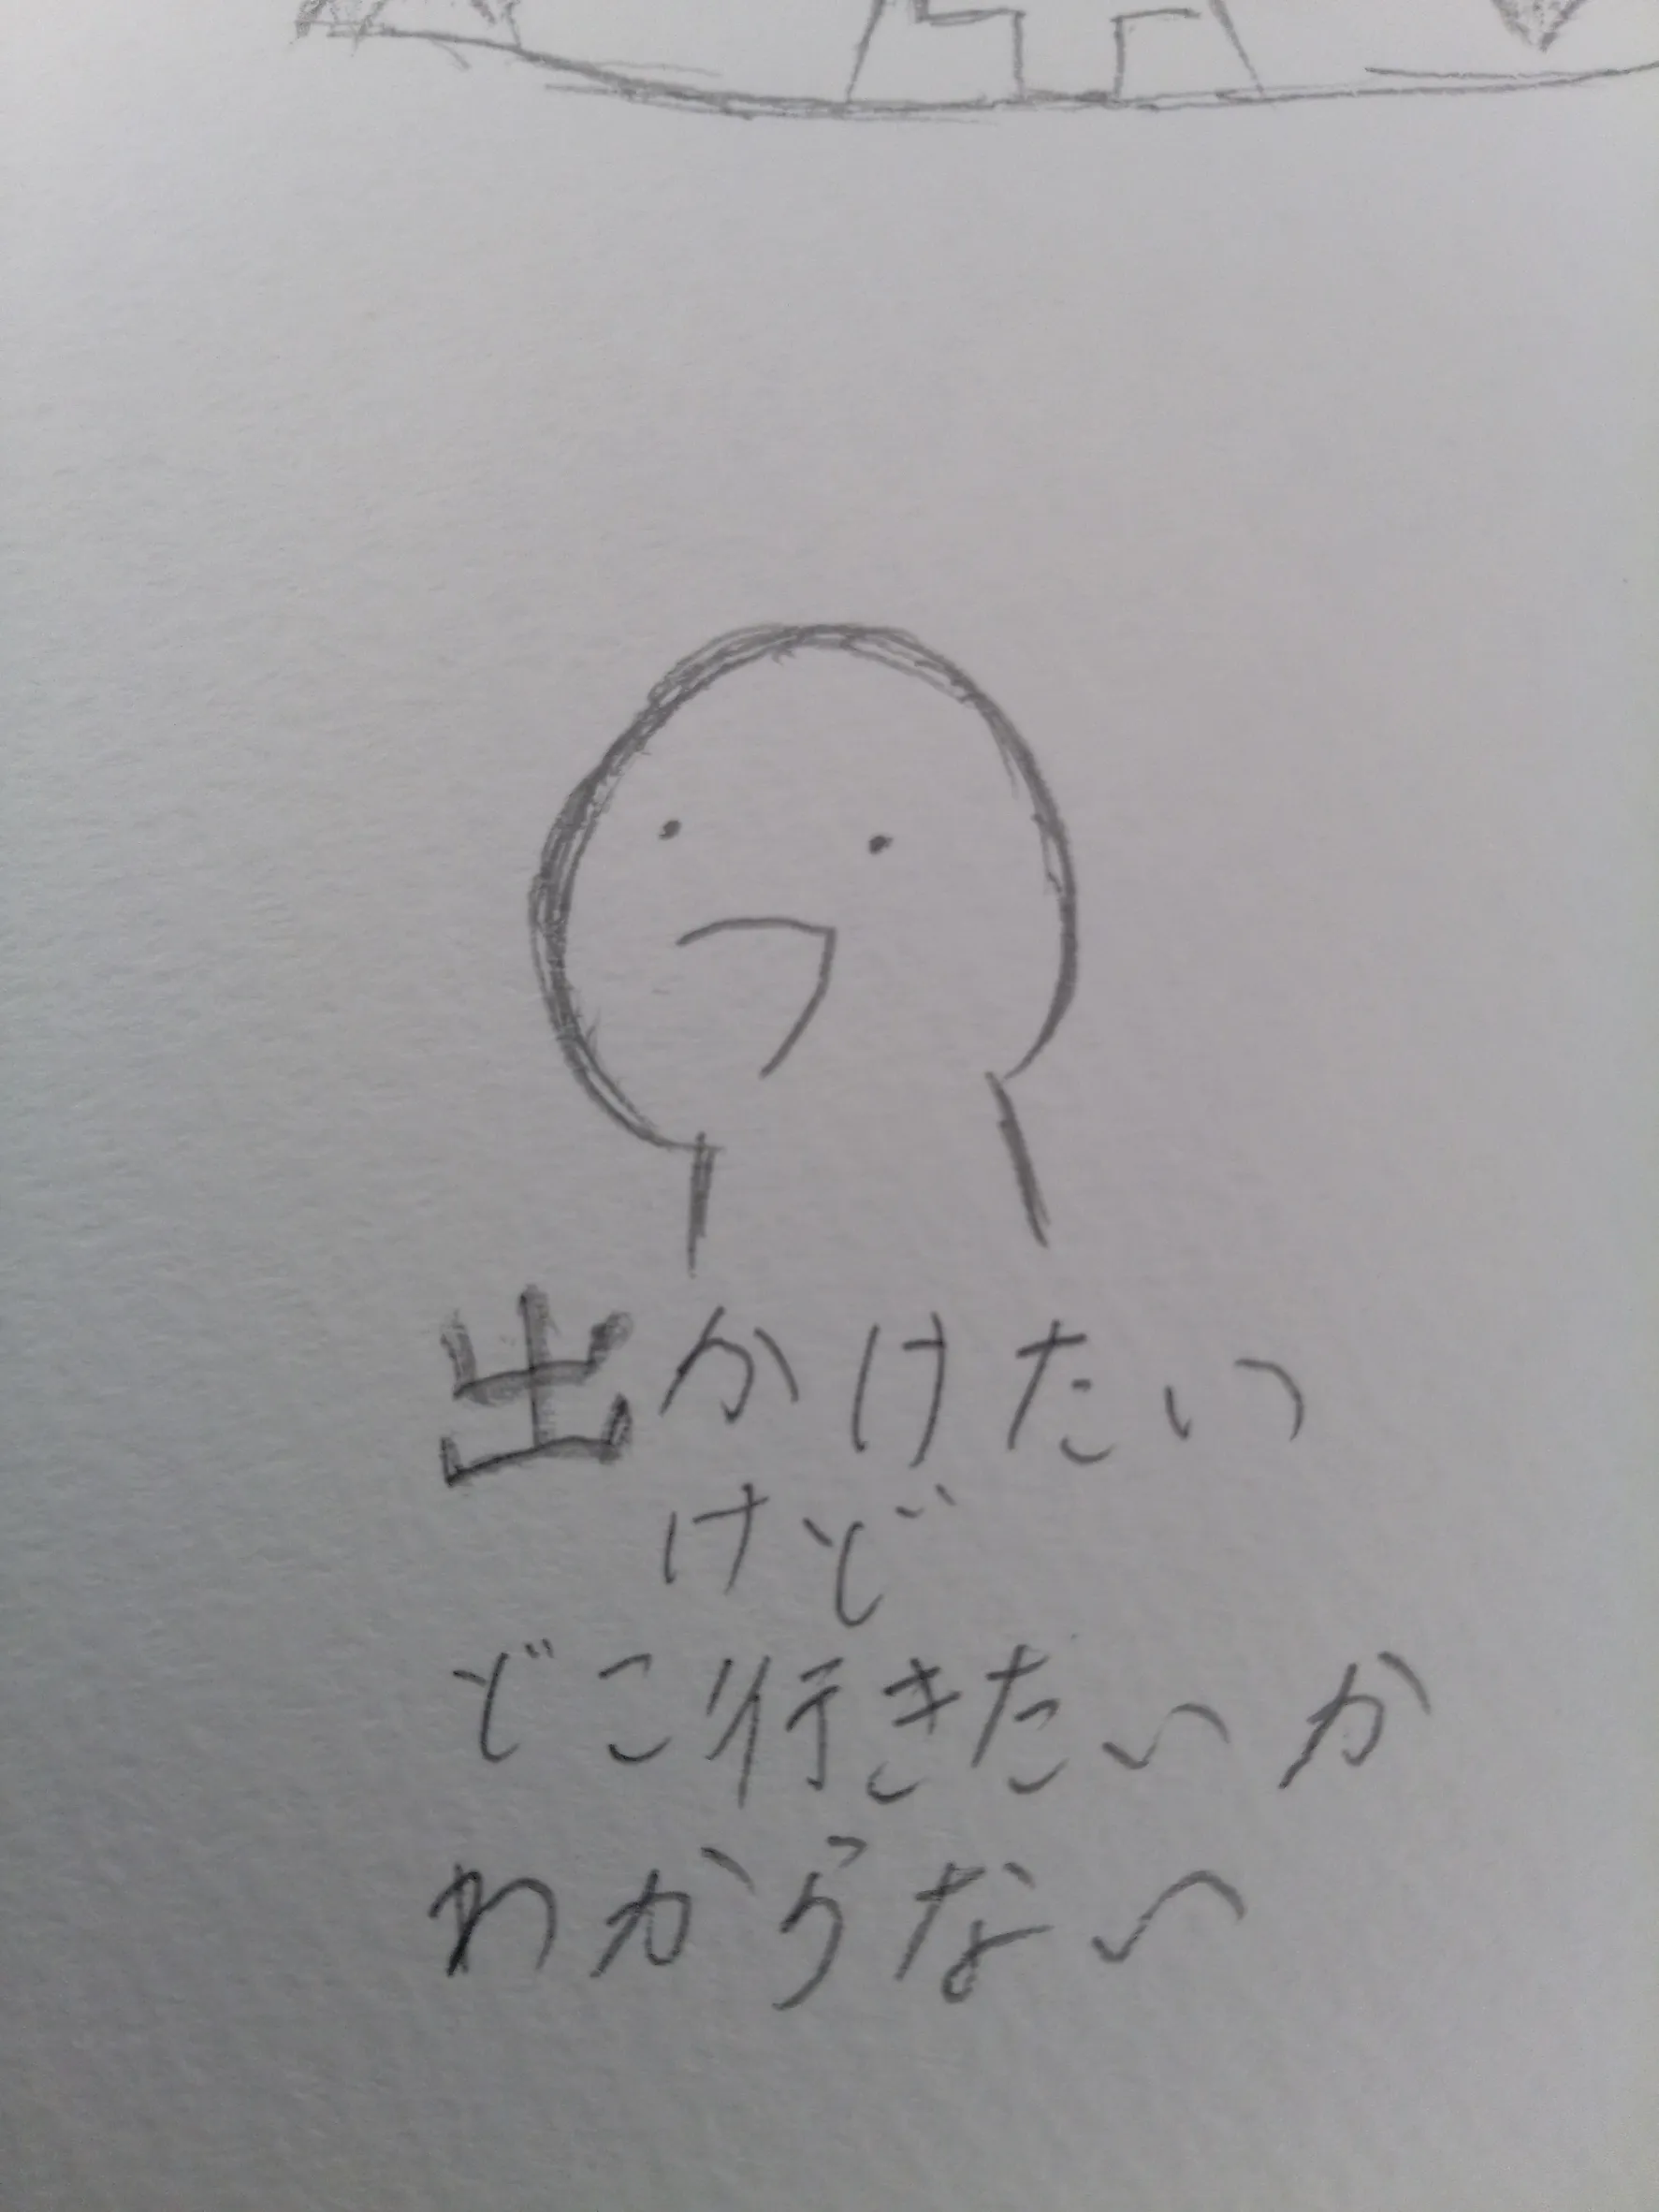 出かけたい
けど
どこ行きたいか
わからない